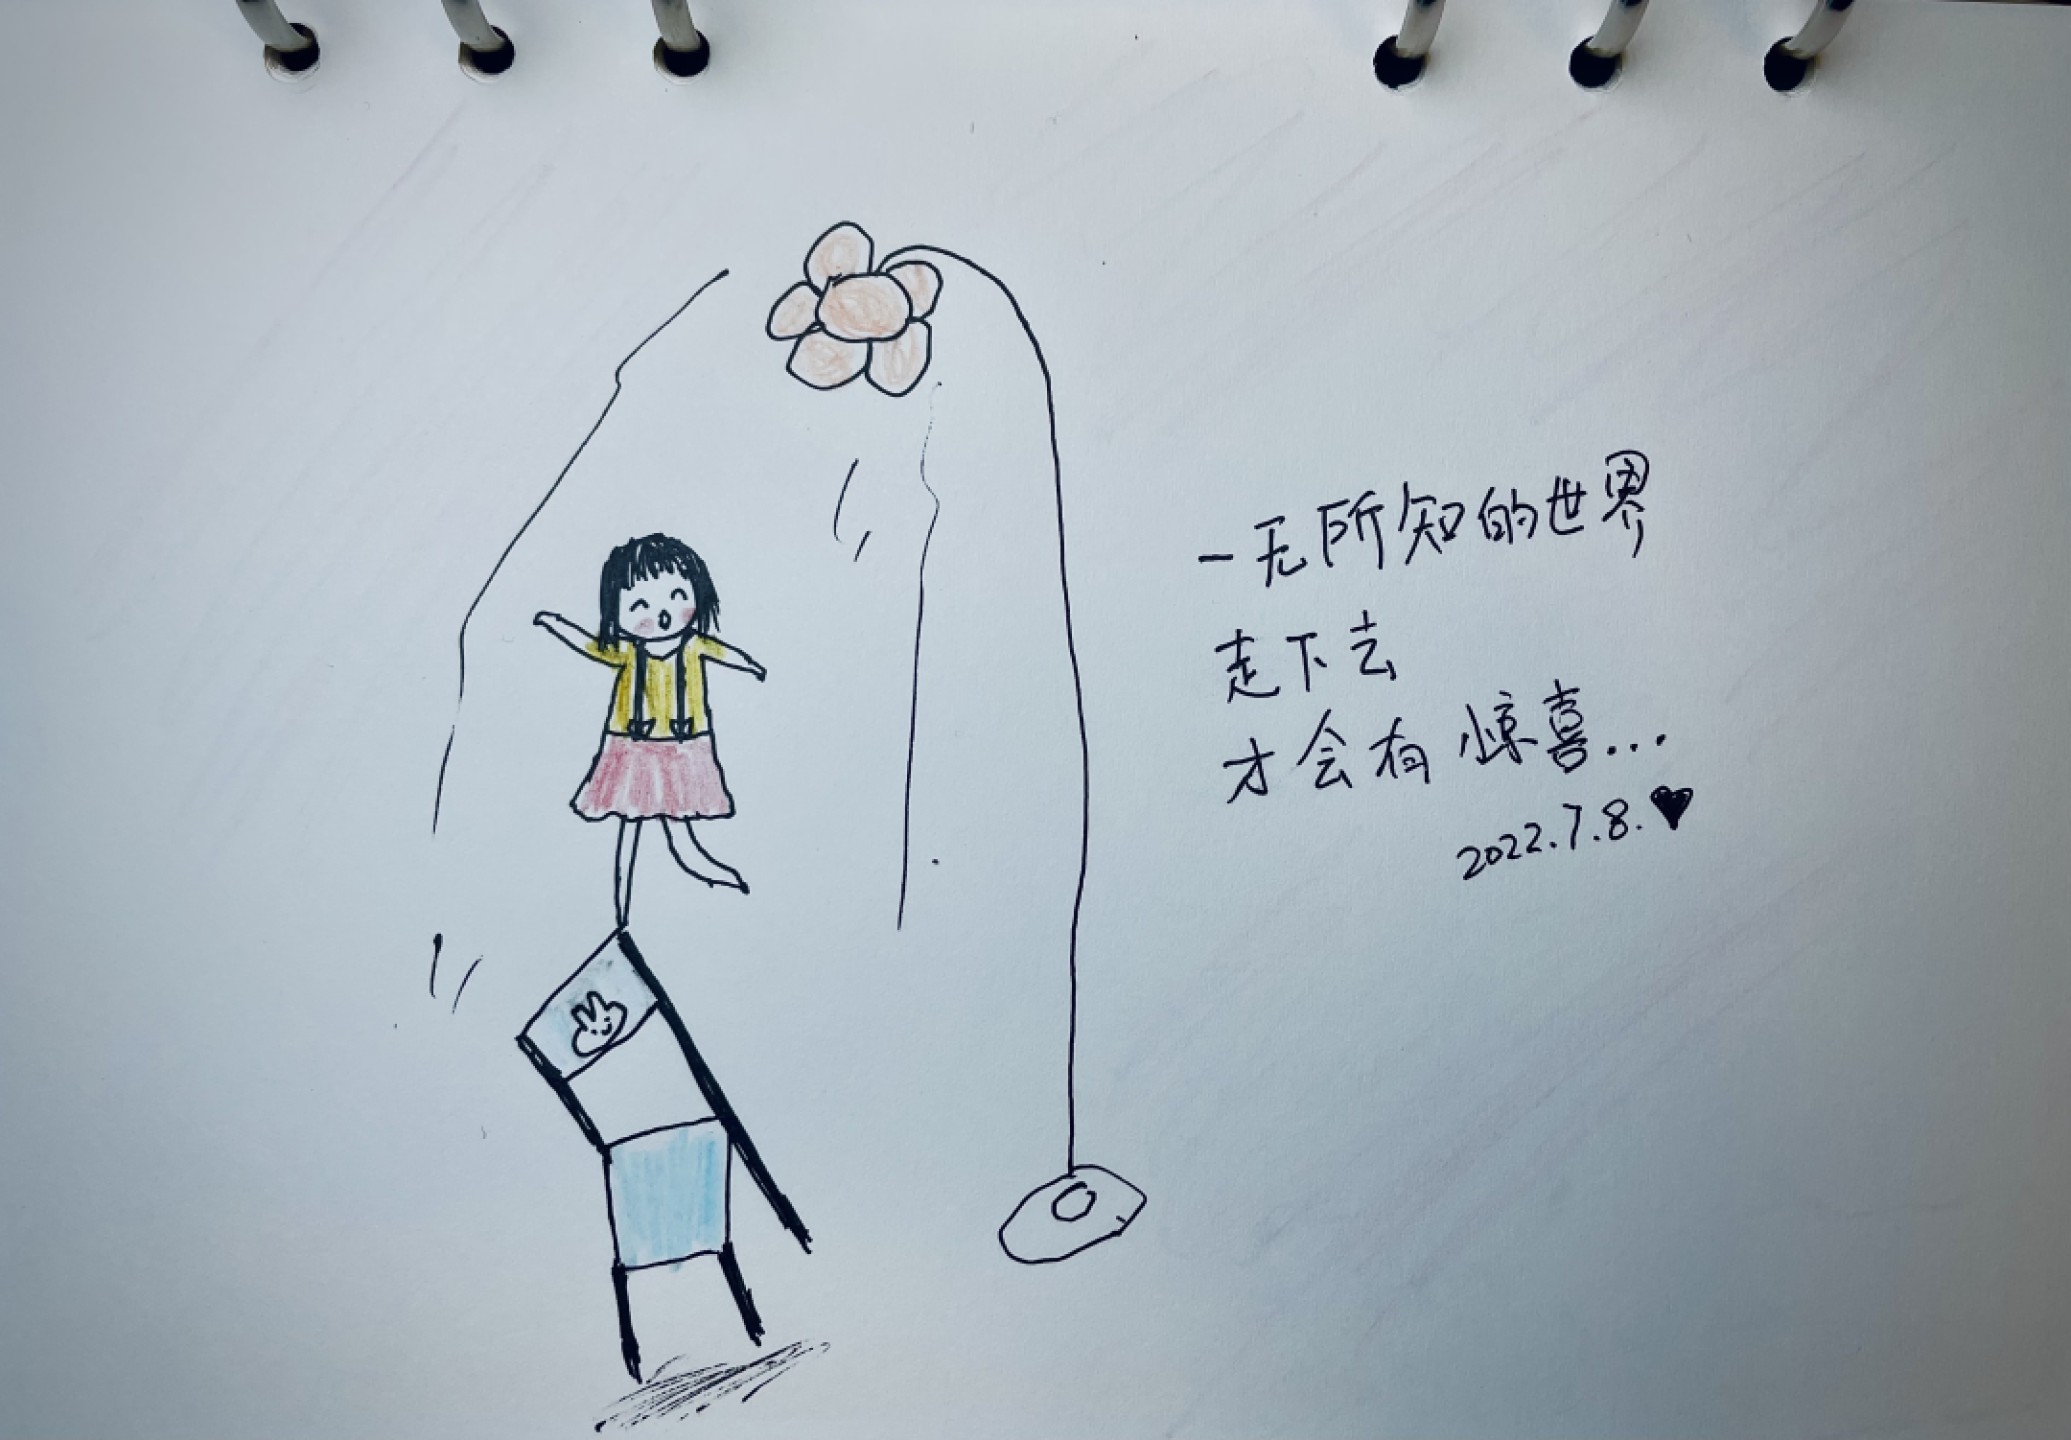 一无所知的世界
走下去
才会有惊喜...
2022.7.8.♥